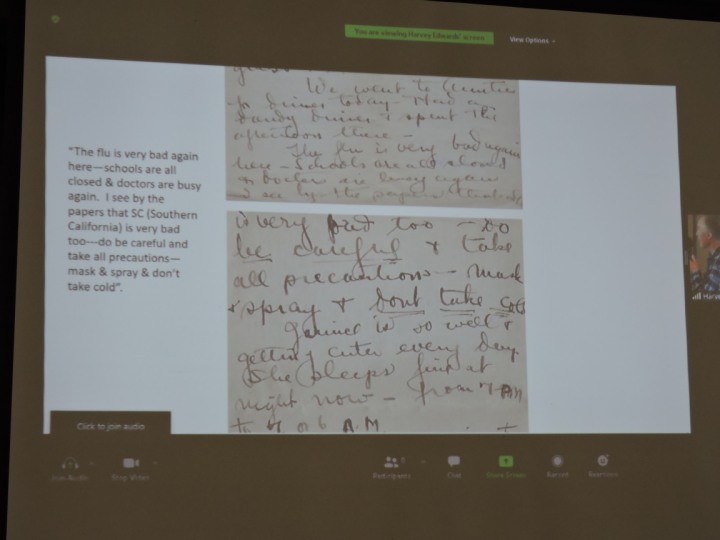 You are viewing Harvey Edwards' screen
View Options
"The flu is very bad again
here—schools are all
closed & doctors are busy
again. I see by the
papers that SC (Southern
California) is very bad
too---do be careful and
take all precautions—
mask & spray & don't
take cold".
We went to Auntie
for dinner today - Had a
dandy dinner & spent the
afternoon there -
The flu is very bad again
here - Schools are all closed
& Doctors are busy again
I see by the papers that
is very bad too - Do
be careful & take
all precautions - mask
& spray & dont take cold
is so well &
getting cuter every day.
She sleeps fine at
night now - from 7 PM
to 6 A.M
Click to join audio
Join Audio
Stop Video
Participants
Chat
Share Screen
Record
Reactions